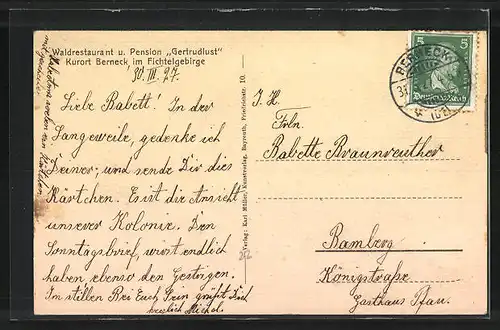 Waldrestaurant u. Pension „Gertrudlust"
Kurort Berneck im Fichtelgebirge
30. III. 27.
Liebe Babett. In der
Langeweile, gedenke ich
Deiner, und sende Dir dies
Kärtchen. Es ist die Ansicht
unserer Kolonie. Den
Sonntagsbrief, wirst endlich
haben, ebenso den Gestrigen.
Im stillen Bei Euch, grüßt Dich
herzlich Michel.
Verlag: Karl Müller, Kunstverlag, Bayreuth, Friedrichstr. 10.
BERNECK
5 5
Deutsches Reich
Frln.
Babette Braunreuther
Bamberg
Königstraße
Gasthaus Pfau.